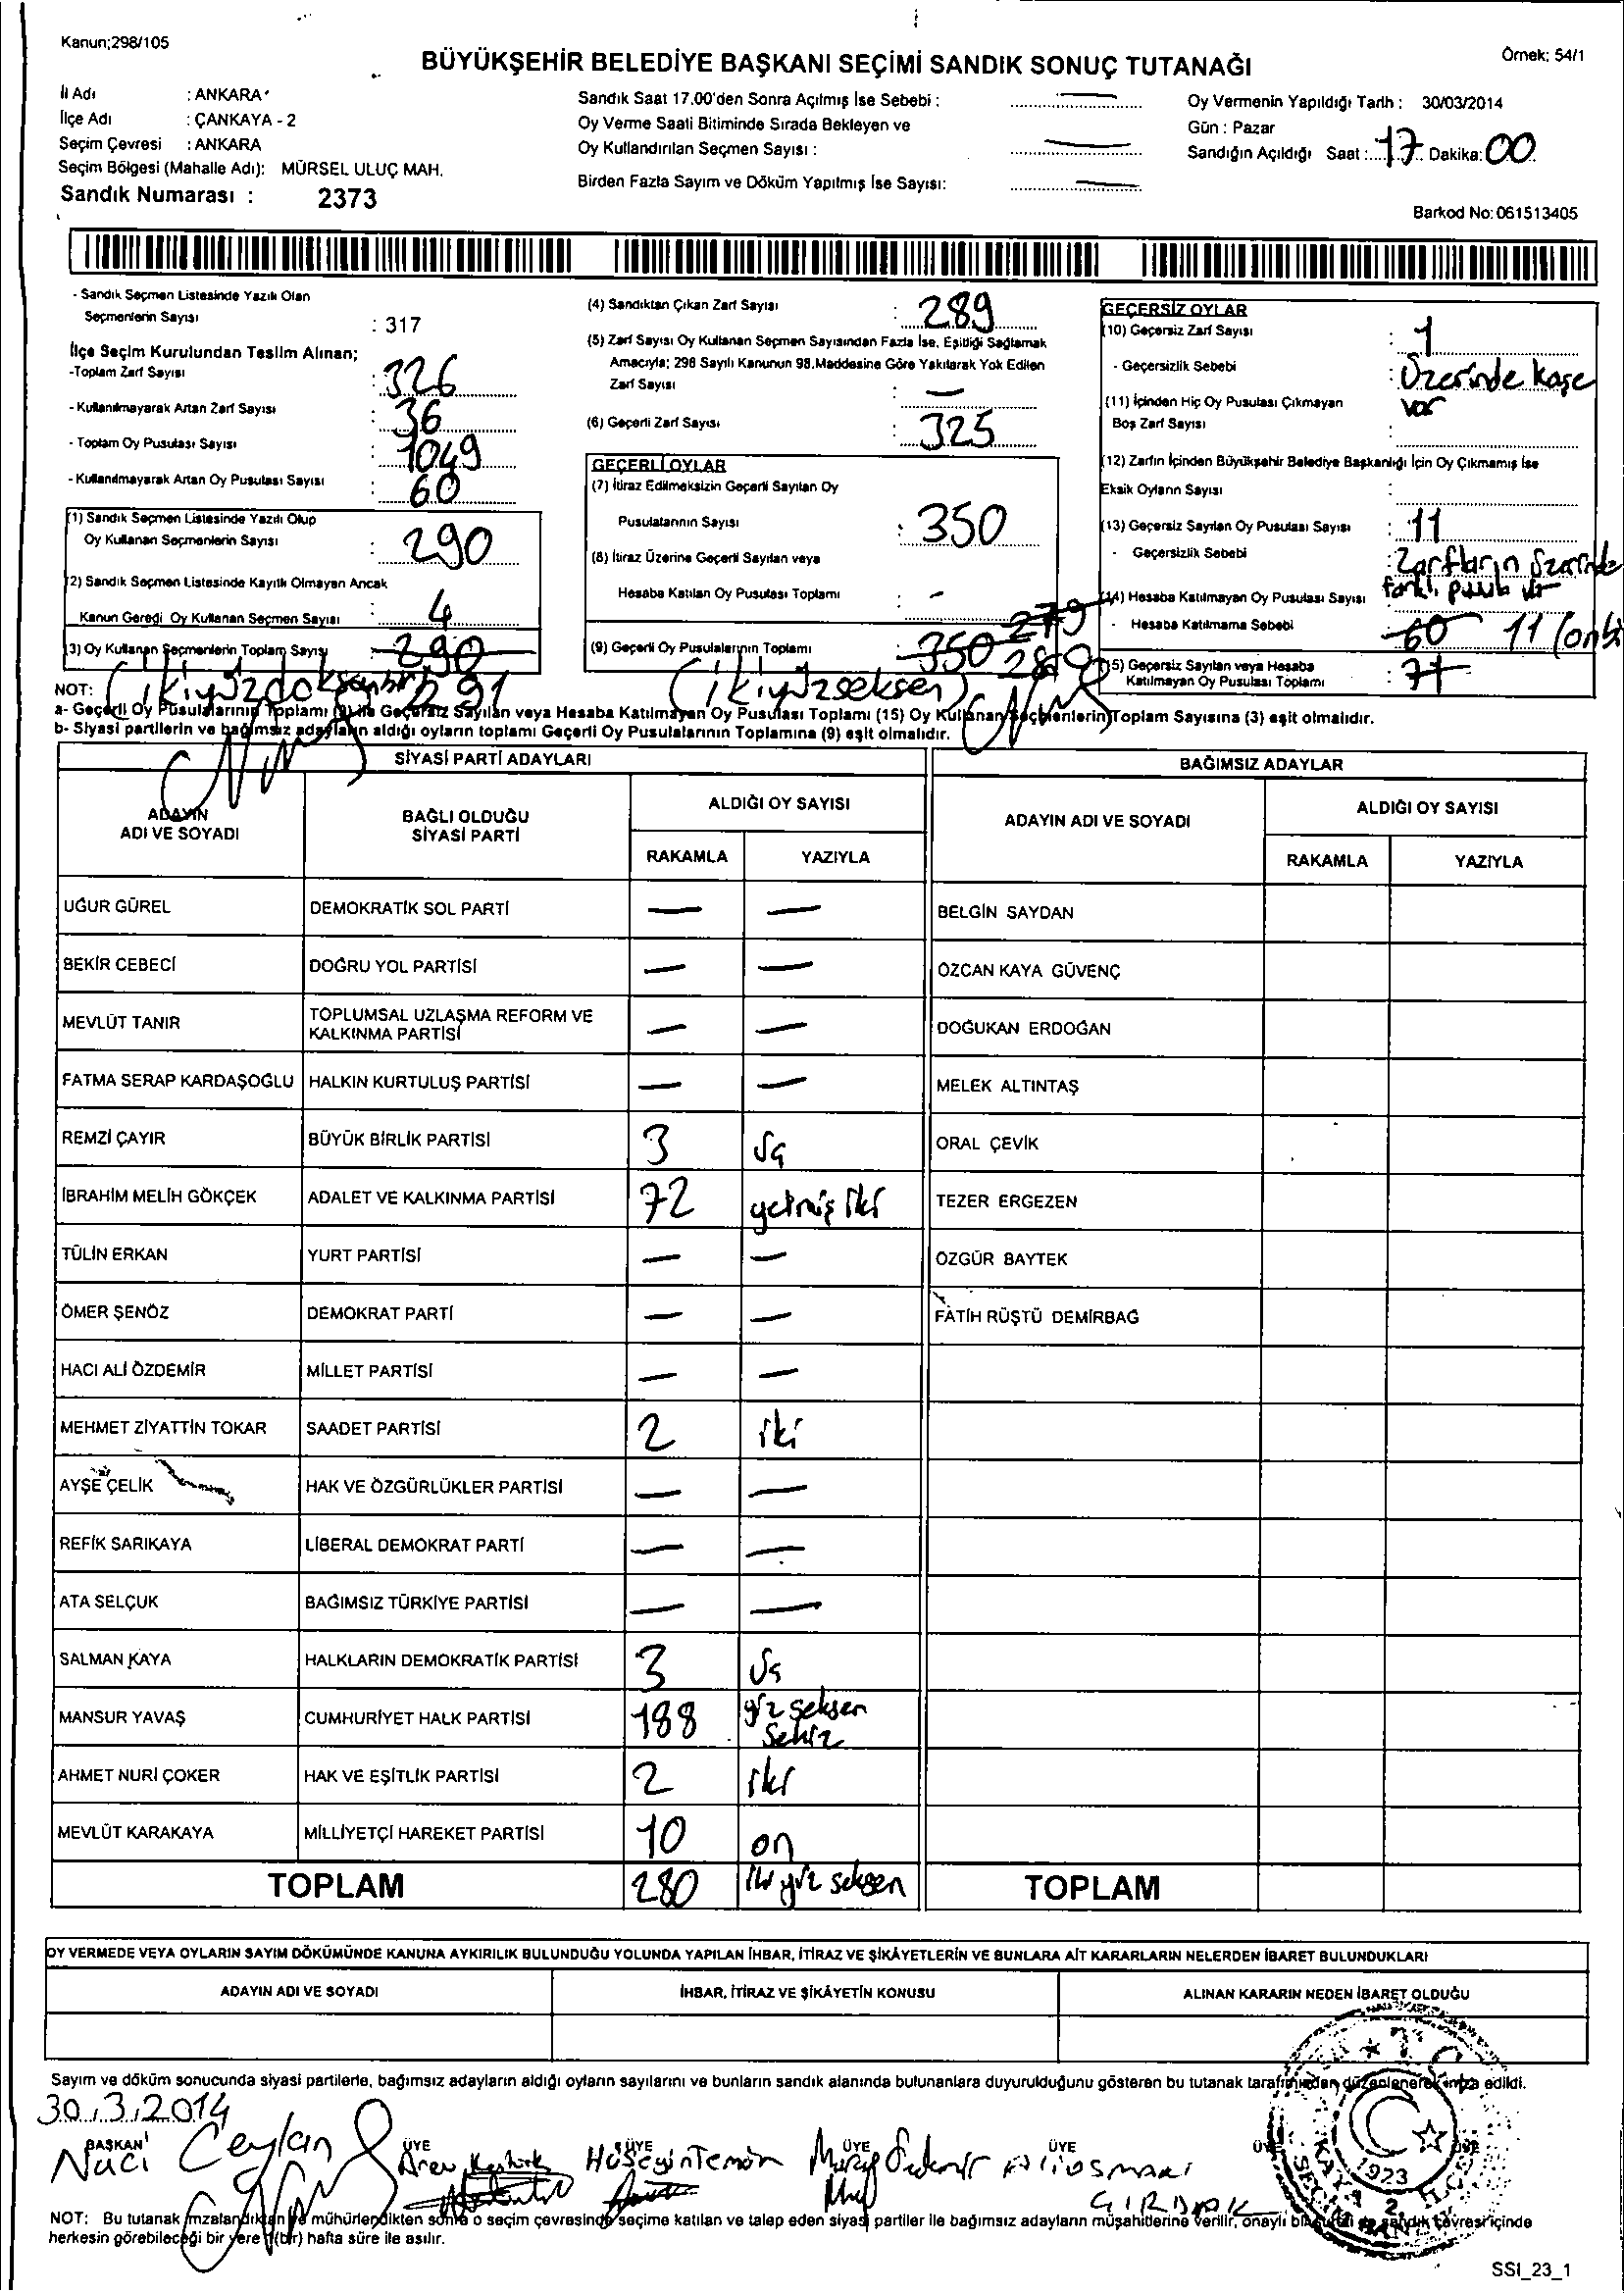 Kanun;298/105
BÜYÜKŞEHİR BELEDİYE BAŞKANI SEÇİMİ SANDIK SONUÇ TUTANAĞI
Örnek: 54/1
İl Adı : ANKARA
İlçe Adı : ÇANKAYA - 2
Seçim Çevresi : ANKARA
Seçim Bölgesi (Mahalle Adı): MÜRSEL ULUÇ MAH.
Sandık Numarası : 2373
Sandık Saat 17.00'den Sonra Açılmış İse Sebebi : —
Oy Verme Saati Bitiminde Sırada Bekleyen ve
Oy Kullandırılan Seçmen Sayısı : —
Birden Fazla Sayım ve Döküm Yapılmış İse Sayısı: —
Oy Vermenin Yapıldığı Tarih : 30/03/2014
Gün : Pazar
Sandığın Açıldığı Saat : 17 Dakika: 00
Barkod No: 061513405
- Sandık Seçmen Listesinde Yazılı Olan
Seçmenlerin Sayısı : 317
İlçe Seçim Kurulundan Teslim Alınan;
-Toplam Zarf Sayısı : 326
- Kullanılmayarak Artan Zarf Sayısı : 36
- Toplam Oy Pusulası Sayısı : 1049
- Kullanılmayarak Artan Oy Pusulası Sayısı : 60
(1) Sandık Seçmen Listesinde Yazılı Olup
Oy Kullanan Seçmenlerin Sayısı : 290
(2) Sandık Seçmen Listesinde Kayıtlı Olmayan Ancak
Kanun Geredi Oy Kullanan Seçmen Sayısı : 4
(3) Oy Kullanan Seçmenlerin Toplam Sayısı 290
(ikiyüzdoksanbir) 291
(4) Sandıktan Çıkan Zarf Sayısı : 289
(5) Zarf Sayısı Oy Kullanan Seçmen Sayısından Fazla İse, Eşitliği Sağlamak
Amacıyla; 298 Sayılı Kanunun 98.Maddesine Göre Yakılarak Yok Edilen
Zarf Sayısı : —
(6) Geçerli Zarf Sayısı : 325
GEÇERLİ OYLAR
(7) İtiraz Edilmeksizin Geçerli Sayılan Oy
Pusulalarının Sayısı : 350
(8) İtiraz Üzerine Geçerli Sayılan veya
Hesaba Katılan Oy Pusulası Toplamı : -
(9) Geçerli Oy Pusulalarının Toplamı 350 279 280
(ikiyüzseksen)
GEÇERSİZ OYLAR
(10) Geçersiz Zarf Sayısı : 1
- Geçersizlik Sebebi : Üzerinde kaşe
var
(11) İçinden Hiç Oy Pusulası Çıkmayan
Boş Zarf Sayısı :
(12) Zarfın İçinden Büyükşehir Belediye Başkanlığı İçin Oy Çıkmamış İse
Eksik Oyların Sayısı :
(13) Geçersiz Sayılan Oy Pusulası Sayısı : 11
- Geçersizlik Sebebi : Zarfların üzerinde
farklı pusula var
(14) Hesaba Katılmayan Oy Pusulası Sayısı
- Hesaba Katılmama Sebebi : 60 11 (onbi
(15) Geçersiz Sayılan veya Hesaba
Katılmayan Oy Pusulası Toplamı : 71
NOT:
a- Geçerli Oy Pusulalarının Toplamı (9) ile Geçersiz Sayılan veya Hesaba Katılmayan Oy Pusulası Toplamı (15) Oy Kullanan Seçmenlerin Toplam Sayısına (3) eşit olmalıdır.
b- Siyasi partilerin ve bağımsız adayların aldığı oyların toplamı Geçerli Oy Pusulalarının Toplamına (9) eşit olmalıdır.
SİYASİ PARTİ ADAYLARI
BAĞIMSIZ ADAYLAR
ADAYIN
ADI VE SOYADI
BAĞLI OLDUĞU
SİYASİ PARTİ
ALDIĞI OY SAYISI
RAKAMLA YAZIYLA
ADAYIN ADI VE SOYADI
ALDIĞI OY SAYISI
RAKAMLA YAZIYLA
UĞUR GÜREL DEMOKRATİK SOL PARTİ — — BELGİN SAYDAN
BEKİR CEBECİ DOĞRU YOL PARTİSİ — — ÖZCAN KAYA GÜVENÇ
MEVLÜT TANIR TOPLUMSAL UZLAŞMA REFORM VE
KALKINMA PARTİSİ — — DOĞUKAN ERDOĞAN
FATMA SERAP KARDAŞOĞLU HALKIN KURTULUŞ PARTİSİ — — MELEK ALTINTAŞ
REMZİ ÇAYIR BÜYÜK BİRLİK PARTİSİ 3 üç ORAL ÇEVİK
İBRAHİM MELİH GÖKÇEK ADALET VE KALKINMA PARTİSİ 72 yetmiş iki TEZER ERGEZEN
TÜLİN ERKAN YURT PARTİSİ — — ÖZGÜR BAYTEK
ÖMER ŞENÖZ DEMOKRAT PARTİ — — FATİH RÜŞTÜ DEMİRBAĞ
HACI ALİ ÖZDEMİR MİLLET PARTİSİ — —
MEHMET ZİYATTİN TOKAR SAADET PARTİSİ 2 iki
AYŞE ÇELİK HAK VE ÖZGÜRLÜKLER PARTİSİ — —
REFİK SARIKAYA LİBERAL DEMOKRAT PARTİ — —
ATA SELÇUK BAĞIMSIZ TÜRKİYE PARTİSİ — —
SALMAN KAYA HALKLARIN DEMOKRATİK PARTİSİ 3 üç
MANSUR YAVAŞ CUMHURİYET HALK PARTİSİ 188 yüz seksen
sekiz
AHMET NURİ ÇOKER HAK VE EŞİTLİK PARTİSİ 2 iki
MEVLÜT KARAKAYA MİLLİYETÇİ HAREKET PARTİSİ 10 on
TOPLAM 280 iki yüz seksen TOPLAM
OY VERMEDE VEYA OYLARIN SAYIM DÖKÜMÜNDE KANUNA AYKIRILIK BULUNDUĞU YOLUNDA YAPILAN İHBAR, İTİRAZ VE ŞİKÂYETLERİN VE BUNLARA AİT KARARLARIN NELERDEN İBARET BULUNDUKLARI
ADAYIN ADI VE SOYADI İHBAR, İTİRAZ VE ŞİKÂYETİN KONUSU ALINAN KARARIN NEDEN İBARET OLDUĞU
Sayım ve döküm sonucunda siyasi partilerle, bağımsız adayların aldığı oyların sayılarını ve bunların sandık alanında bulunanlara duyurulduğunu gösteren bu tutanak tarafımızdan düzenlenerek imza edildi.
30.3.2014
BAŞKAN ÜYE ÜYE ÜYE ÜYE ÜYE ÜYE
Naci Ceylan Hüseyin Temon Ali Osman
GIRDAK
1923
NOT: Bu tutanak imzalandıktan ve mühürlendikten sonra o seçim çevresinde seçime katılan ve talep eden siyasi partiler ile bağımsız adayların müşahitlerine verilir, onaylı bir sureti de sandık çevresi içinde
herkesin görebileceği bir yere 1(bir) hafta süre ile asılır.
SSI_23_1